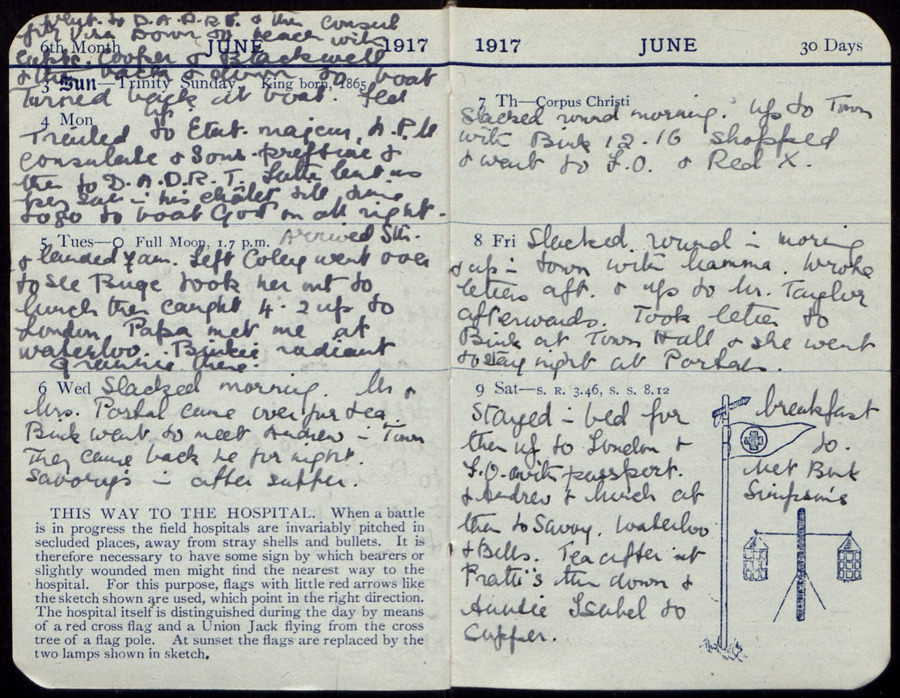 Went to D.A.D.R.T. & then Consul
for Visa Down on beach with
Capts. Cooper & Blackwell
6th Month JUNE 1917
& then back & down to boat
3 Sun—Trinity Sunday. King born, 1865
Turned back at boat.
4 Mon
to Etat. majeur, A.P.M
Consulate & Sous-prefture &
then to D.A.D.R.T. Latter lent us
his châlet till time
to go to boat Got on all right.
5 Tues—O Full Moon, 1.7 p.m. Arrived Sth.
& landed 7am. Left Coley went over
to see Buge took her out to
lunch then caught 4.2 up to
London Papa met me at
waterloo. Binkie radiant
Grannie there.
6 Wed Slacked morning. Mr &
Mrs. Portal came over for tea
Bink went to meet Andrew in Town
They came back he for night.
Savorys in after supper.
THIS WAY TO THE HOSPITAL. When a battle
is in progress the field hospitals are invariably pitched in
secluded places, away from stray shells and bullets. It is
therefore necessary to have some sign by which bearers or
slightly wounded men might find the nearest way to the
hospital. For this purpose, flags with little red arrows like
the sketch shown are used, which point in the right direction.
The hospital itself is distinguished during the day by means
of a red cross flag and a Union Jack flying from the cross
tree of a flag pole. At sunset the flags are replaced by the
two lamps shown in sketch.
1917 JUNE 30 Days
7 Th—Corpus Christi
Slacked round morning. Up to Town
with Bink 12.16 shopped
& went to F.O. & Red X.
8 Fri Slacked round in morning
& up in town with Mamma. Wrote
letters aft. & up to Mr. Taylor
afterwards. Took letter to
Bink at Town Hall & she went
to stay night at Portals.
9 Sat—S. R. 3.46, S. S. 8.12
Stayed in bed for breakfast
then up to London & to
F.O. with passport. Met Bink
& Andrew & lunch at Simpson's
then to Savoy. Waterloo
& Bills. Tea after at
Pratti's then down &
Auntie Isabel to
supper.